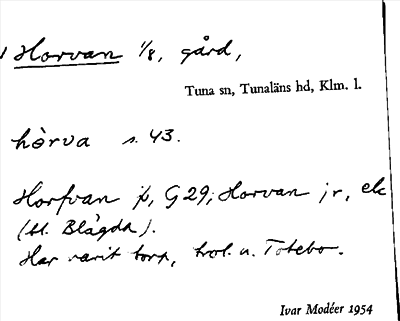 Horvan 1/8, gård,
Tuna sn, Tunaläns hd, Klm. l.
hòrva s. 43.
Horfvan jb, G29; Horvan jr, ek
(til Blågda).
Har varit torp, trol. u. Totebo.
Ivar Modéer 1954